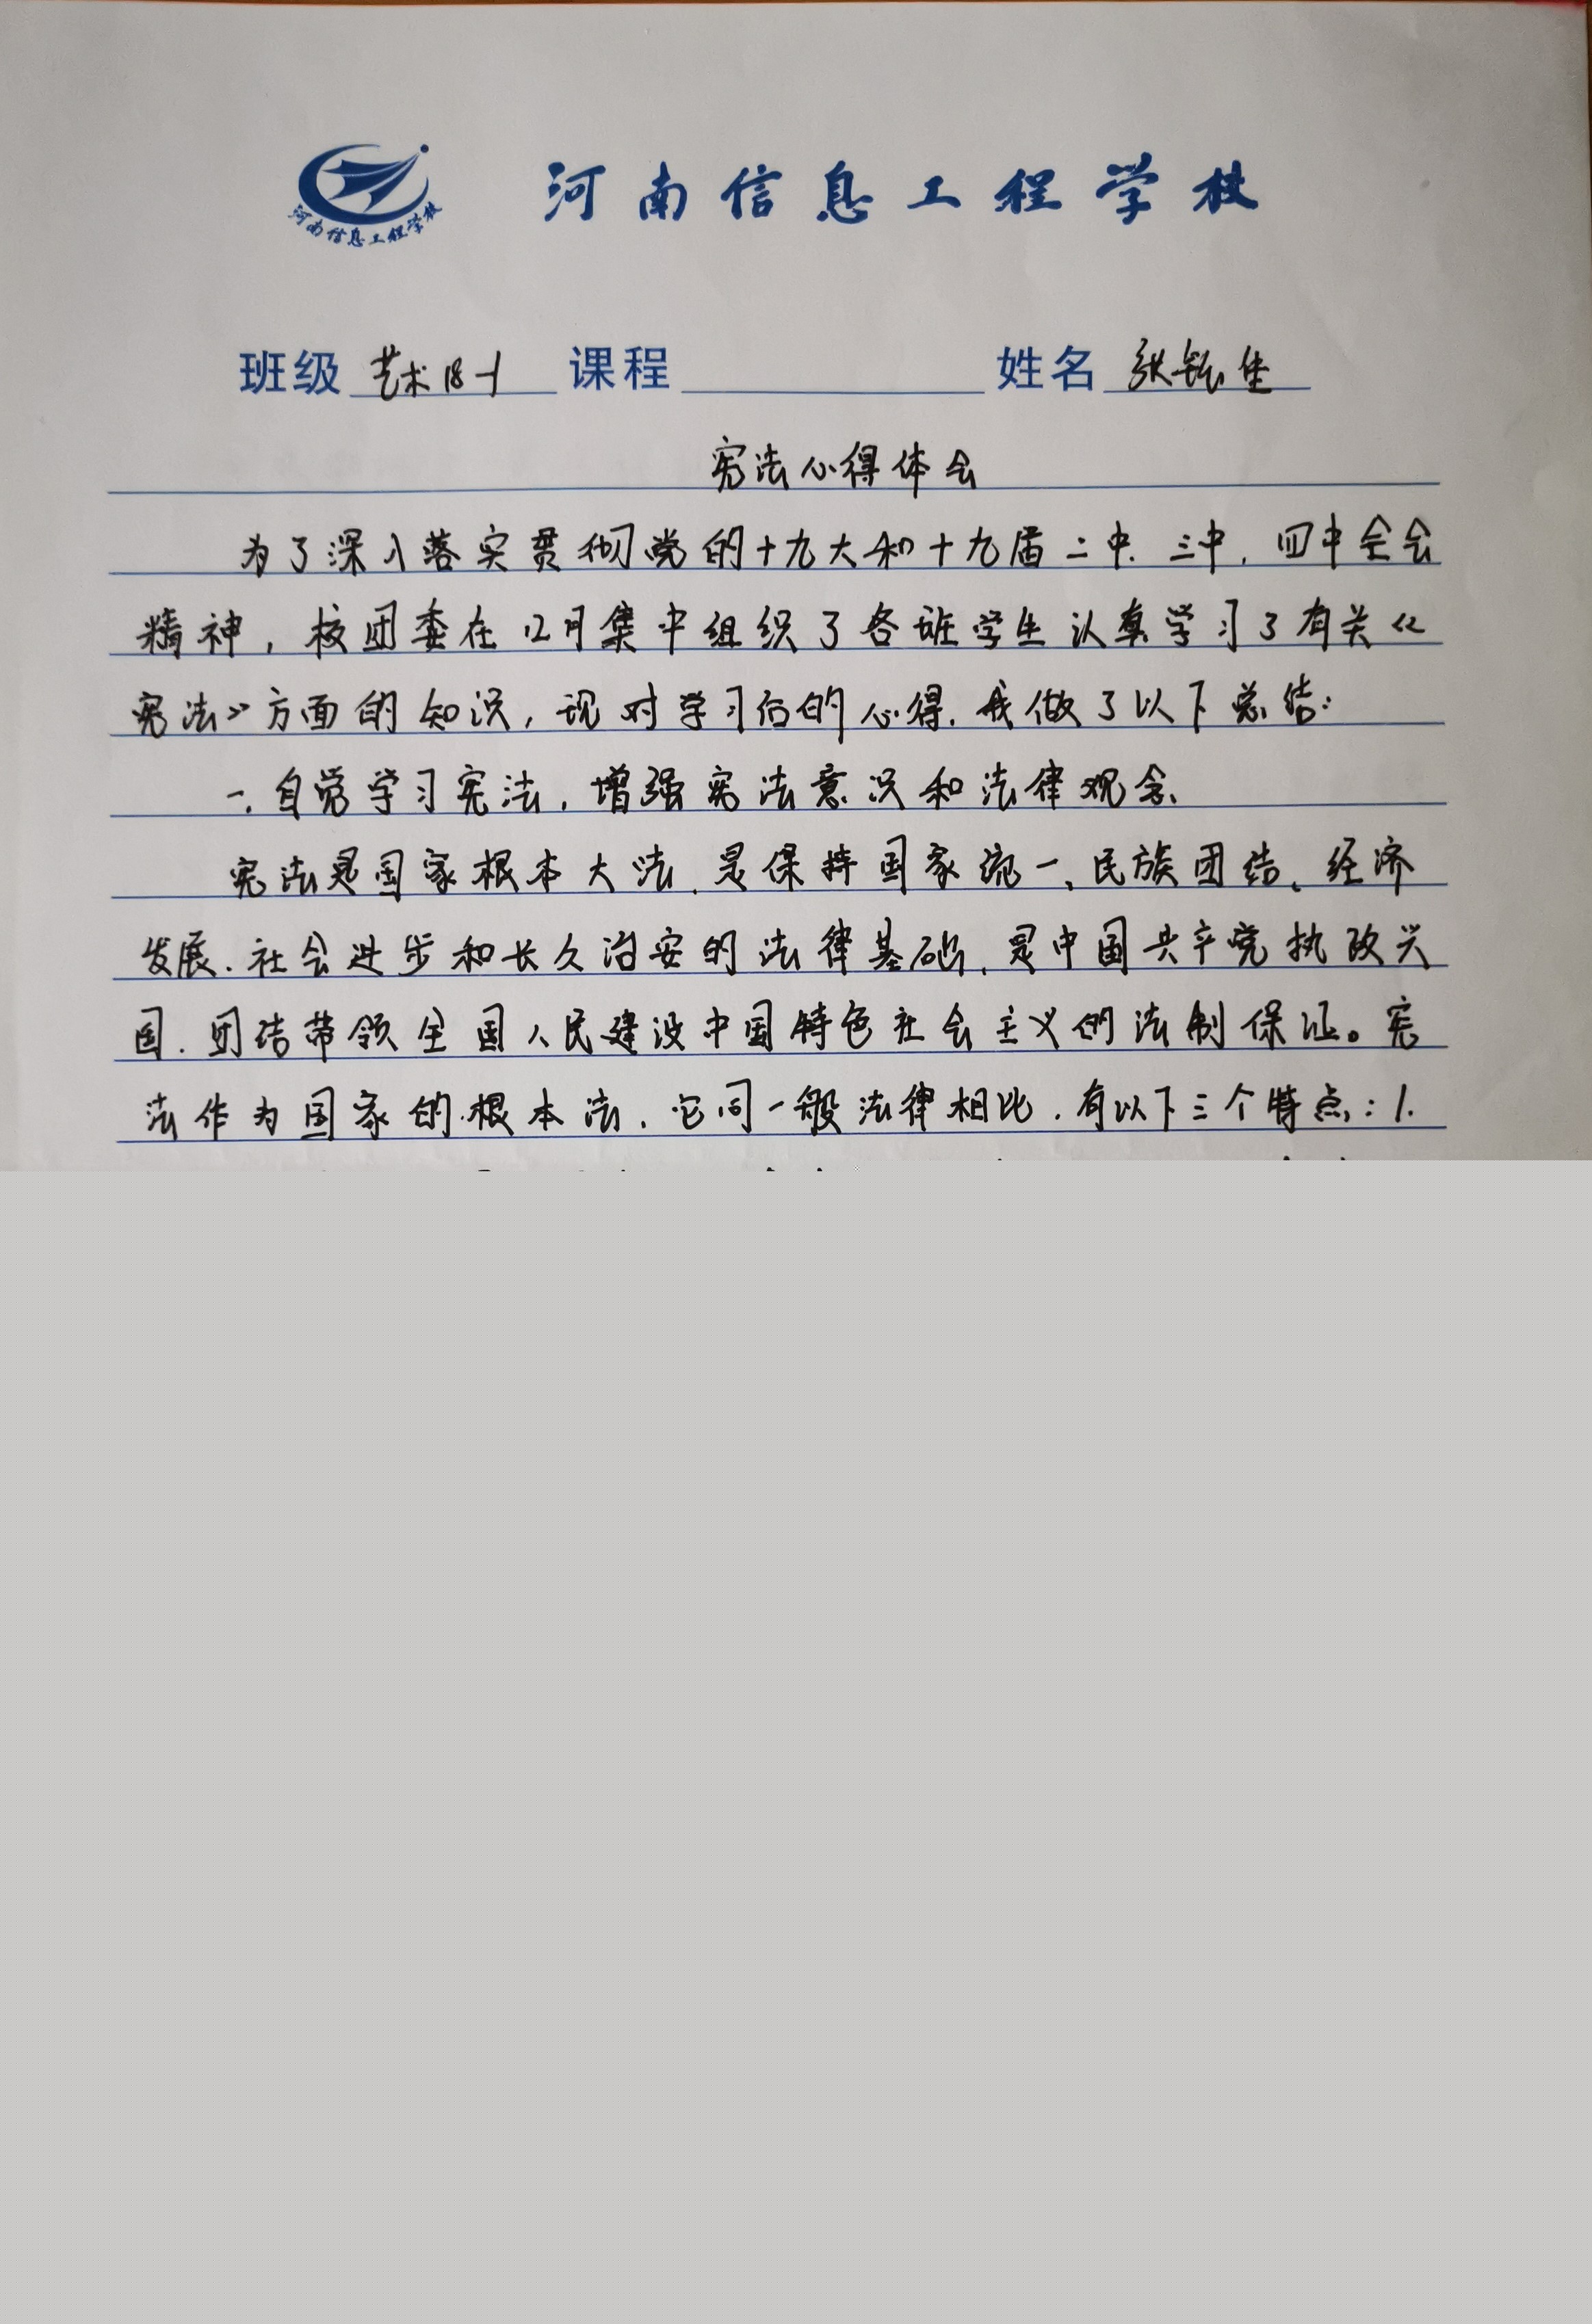 河南信息工程学校
河南信息工程学校
班级 艺术18-1 课程 姓名 张钰佳
宪法心得体会
为了深入落实贯彻党的十九大和十九届二中.三中,四中全会
精神,校团委在12月集中组织了各班学生认真学习了有关《
宪法》方面的知识,现对学习后的心得.我做了以下总结:
一.自觉学习宪法,增强宪法意识和法律观念、
宪法是国家根本大法.是保持国家统一、民族团结、经济
发展.社会进步和长久治安的法律基础.是中国共产党执政兴
国.团结带领全国人民建设中国特色社会主义的法制保证。宪
法作为国家的根本法.它同一般法律相比.有以下三个特点:1.